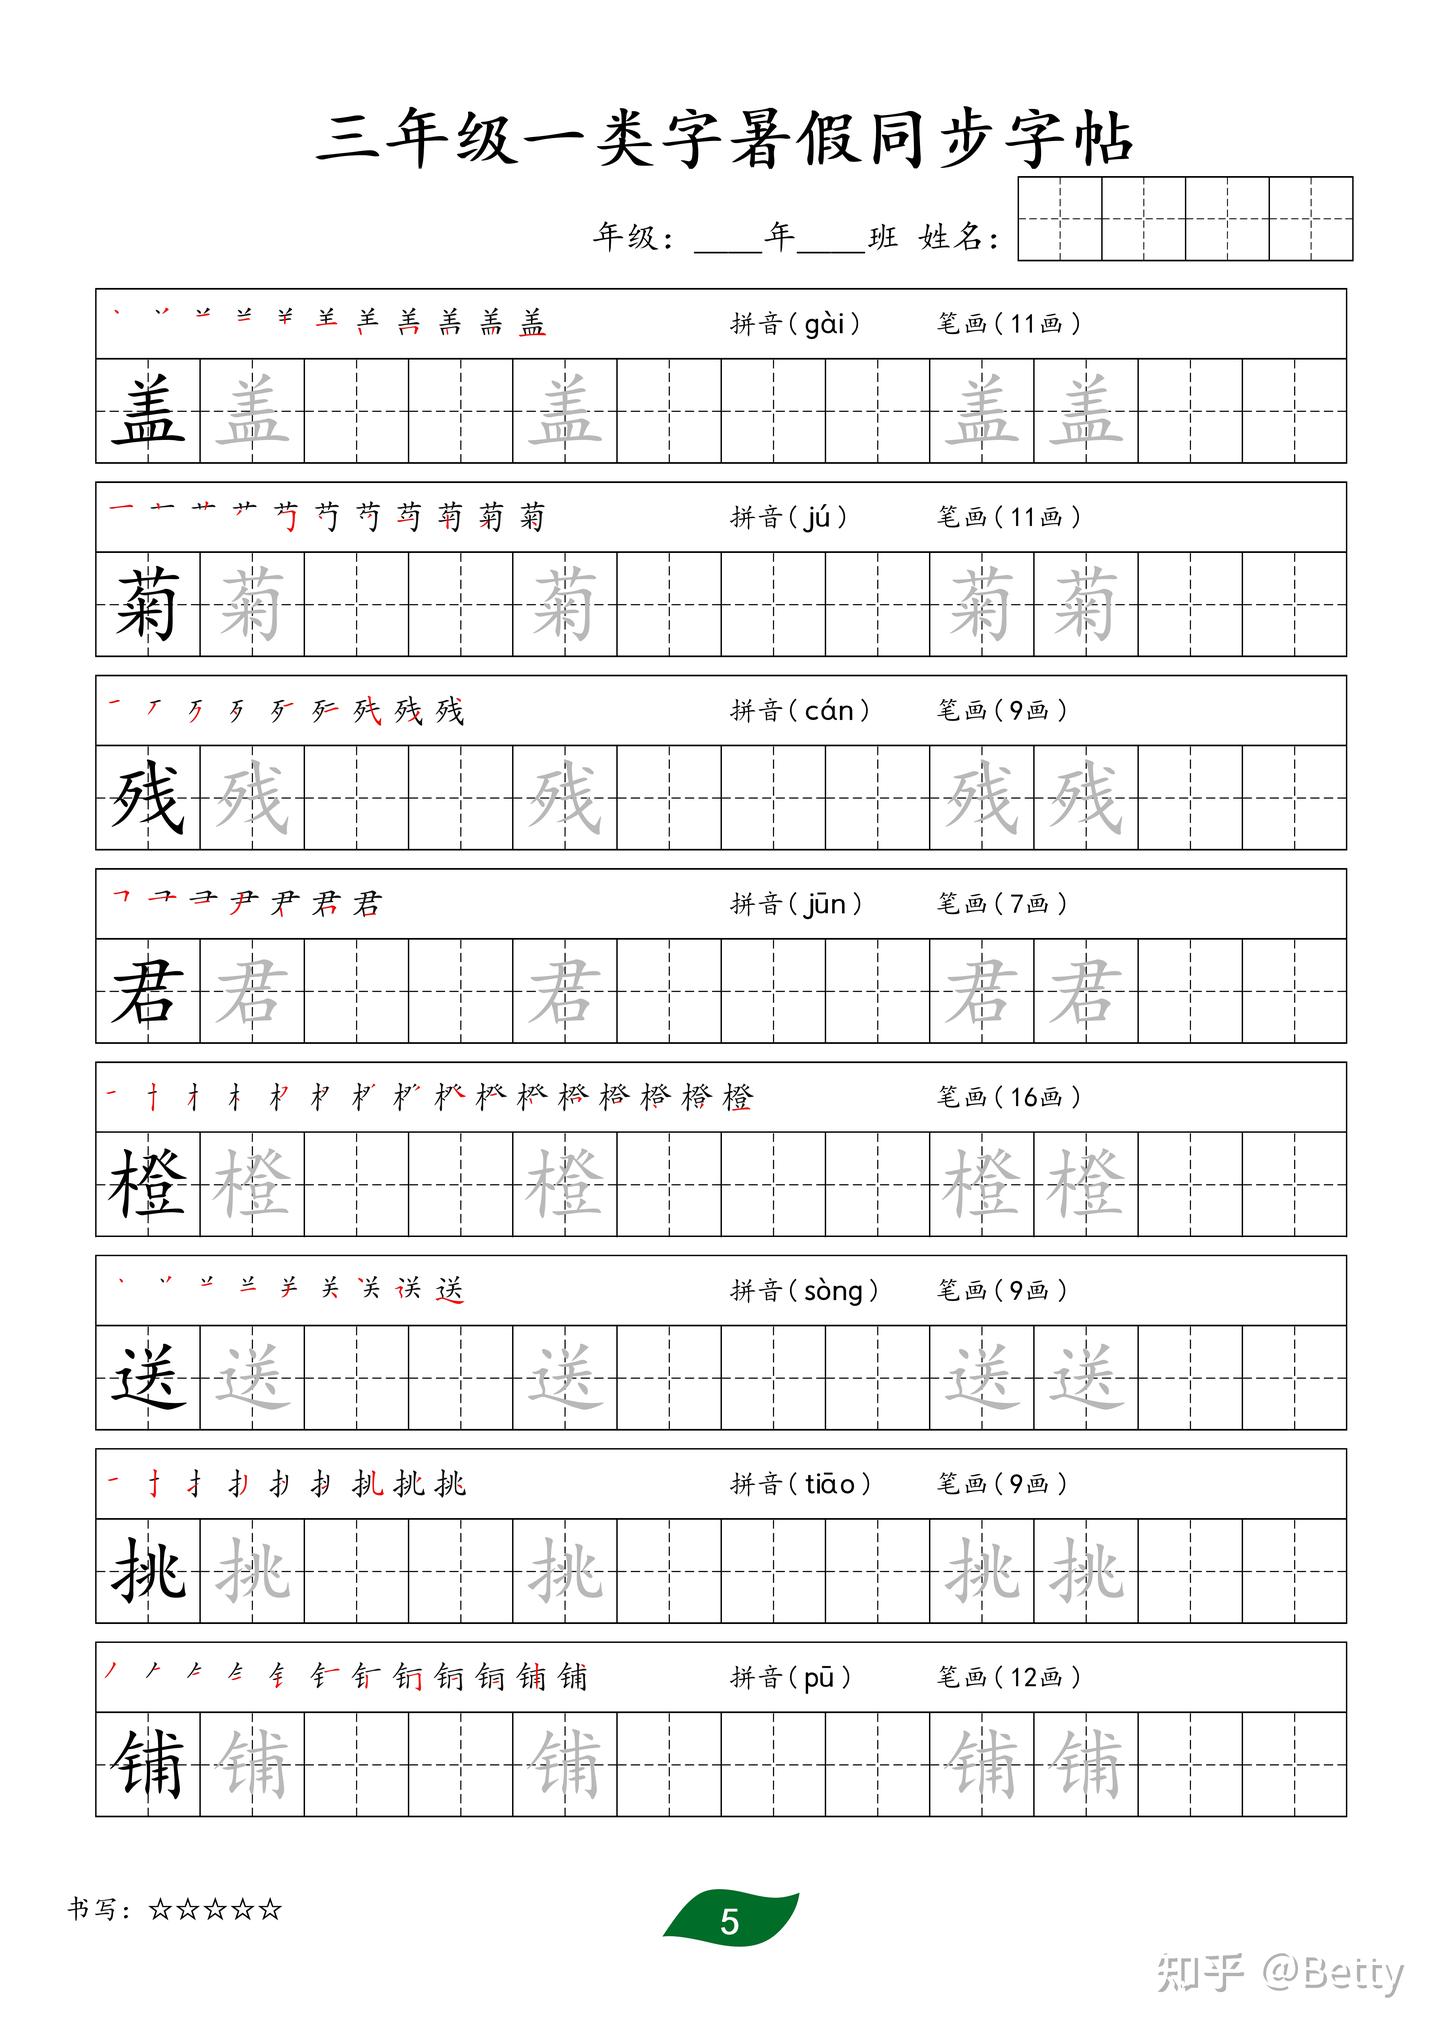 三年级一类字暑假同步字帖
年级：____年____班 姓名：
拼音(gài) 笔画(11画)
盖 盖 盖 盖 盖
拼音(jú) 笔画(11画)
菊 菊 菊 菊 菊
拼音(cán) 笔画(9画)
残 残 残 残 残
拼音(jūn) 笔画(7画)
君 君 君 君 君
笔画(16画)
橙 橙 橙 橙 橙
拼音(sòng) 笔画(9画)
送 送 送 送 送
拼音(tiāo) 笔画(9画)
挑 挑 挑 挑 挑
拼音(pū) 笔画(12画)
铺 铺 铺 铺 铺
书写：☆☆☆☆☆
5
知乎 @Betty